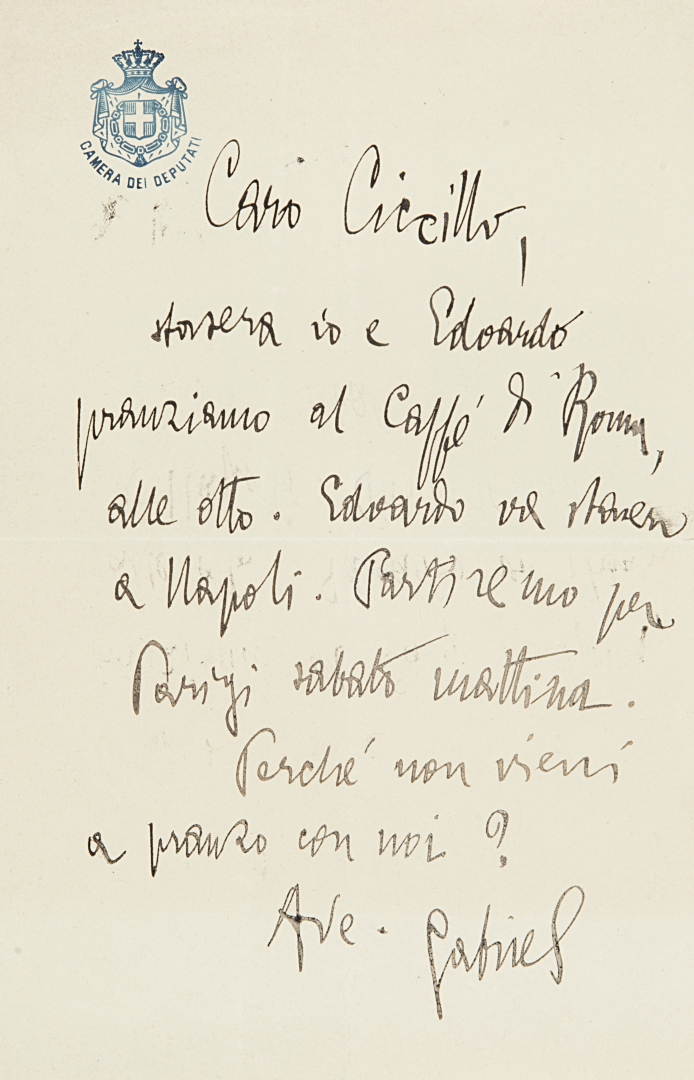 CAMERA DEI DEPUTATI
Caro Ciccillo,
stasera io e Edoardo
pranziamo al Caffé di Roma,
alle otto. Edoardo va stasera
a Napoli. Partiremo per
Parigi sabato mattina.
Perché non vieni
a pranzo con noi?
Ave. Gabriel